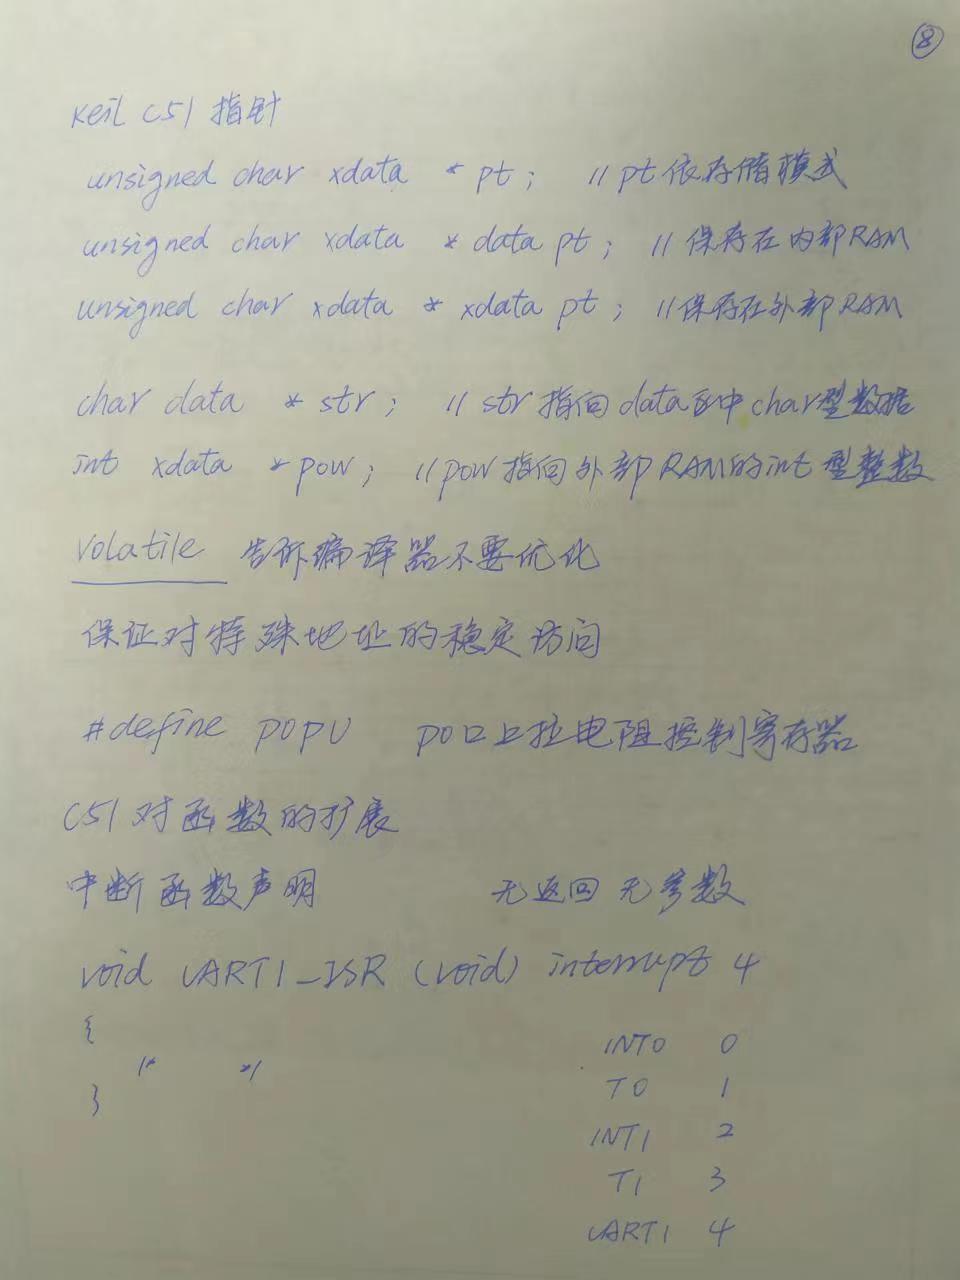 ⑧
Keil C51 指针
unsigned char xdata * pt; // pt依存储模式
unsigned char xdata * data pt; // 保存在内部RAM
unsigned char xdata * xdata pt; //保存在外部RAM
char data * str; // str指向data区中char型数据
int xdata * pow; //pow指向外部RAM的int型整数
volatile 告诉编译器不要优化
保证对特殊地址的稳定访问
#define P0PU P0口上拉电阻控制寄存器
C51对函数的扩展
中断函数声明 无返回 无参数
void UART1_ISR (void) interrupt 4
{
/* */
}
INT0 0
T0 1
INT1 2
T1 3
UART1 4